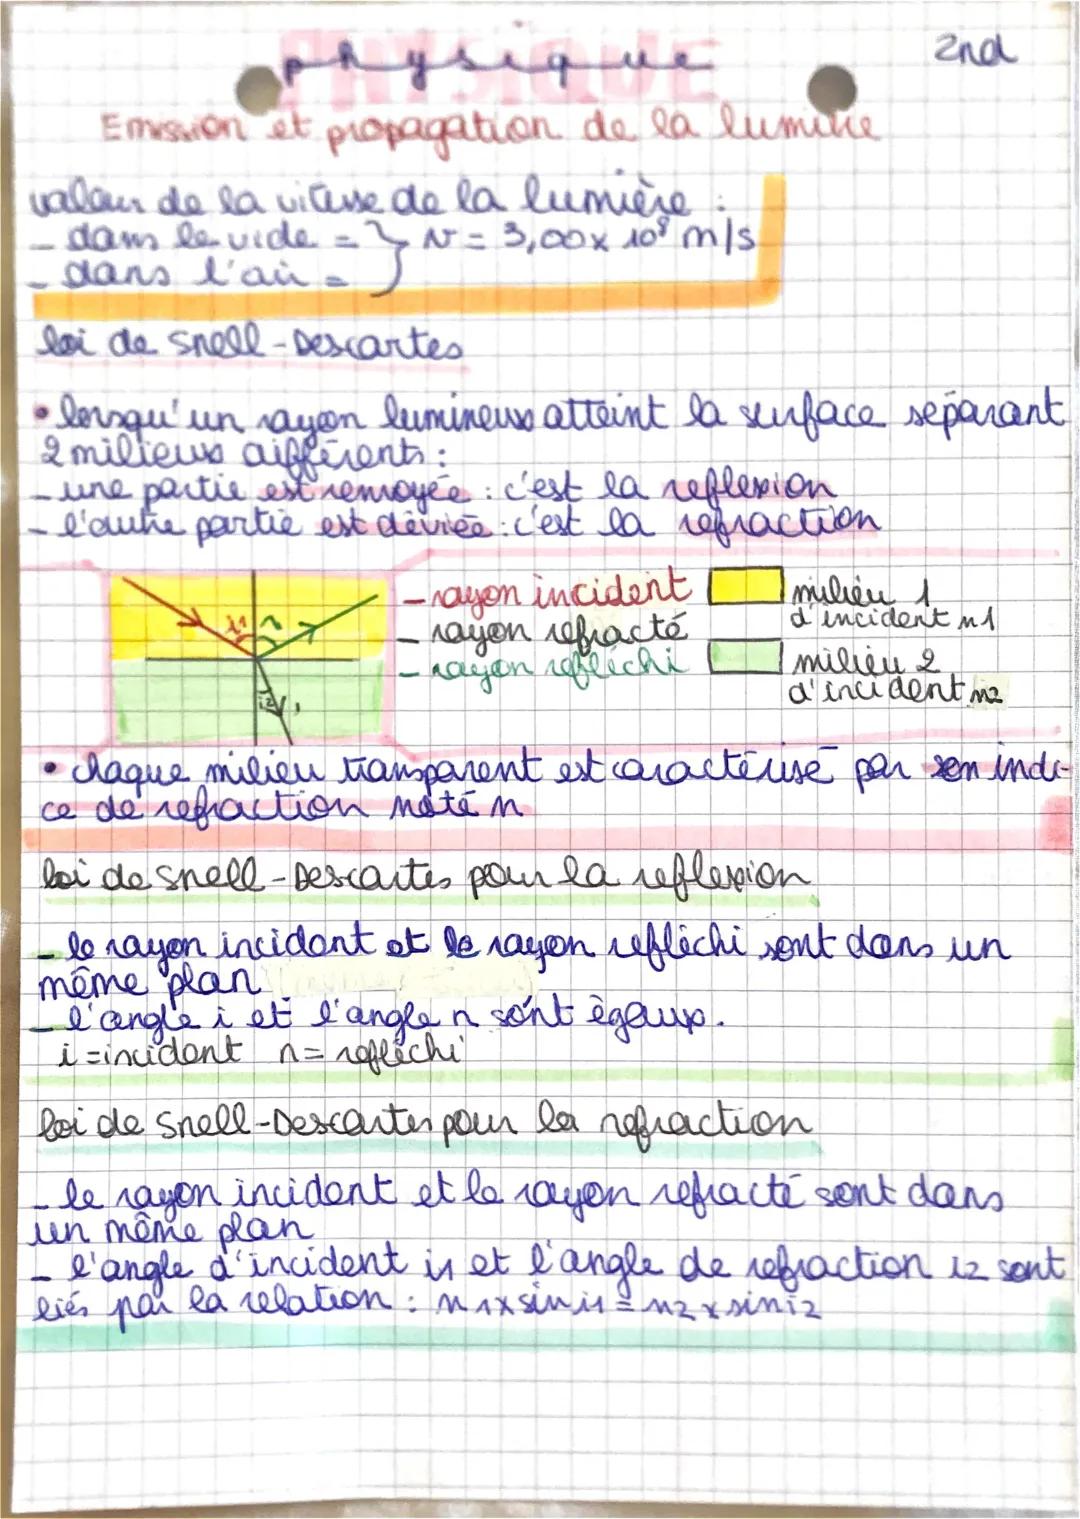 physique
2nd
Emission et propagation de la lumière
valeur de la vitesse de la lumière :
- dans le vide = } v = 3,00 x 10⁸ m/s
- dans l'air =
loi de Snell - Descartes
• lorsqu'un rayon lumineux atteint la surface séparant
2 milieux différents :
- une partie est renvoyée : c'est la reflexion
- l'autre partie est déviée : c'est la refraction
- rayon incident
- rayon refracté
- rayon refléchi
milieu 1
d'incident n1
milieu 2
d'incident n2
i1 r
i2
• chaque milieu transparent est caractérisé par son indi-
ce de refraction noté n
loi de Snell - Descartes pour la reflexion
- le rayon incident et le rayon refléchi sont dans un
même plan
- l'angle i et l'angle r sont égaux.
i = incident r = refléchi
loi de Snell - Descartes pour la refraction
- le rayon incident et le rayon refracté sont dans
un même plan
- l'angle d'incident i1 et l'angle de refraction i2 sont
liés par la relation : n1 x sin i1 = n2 x sin i2